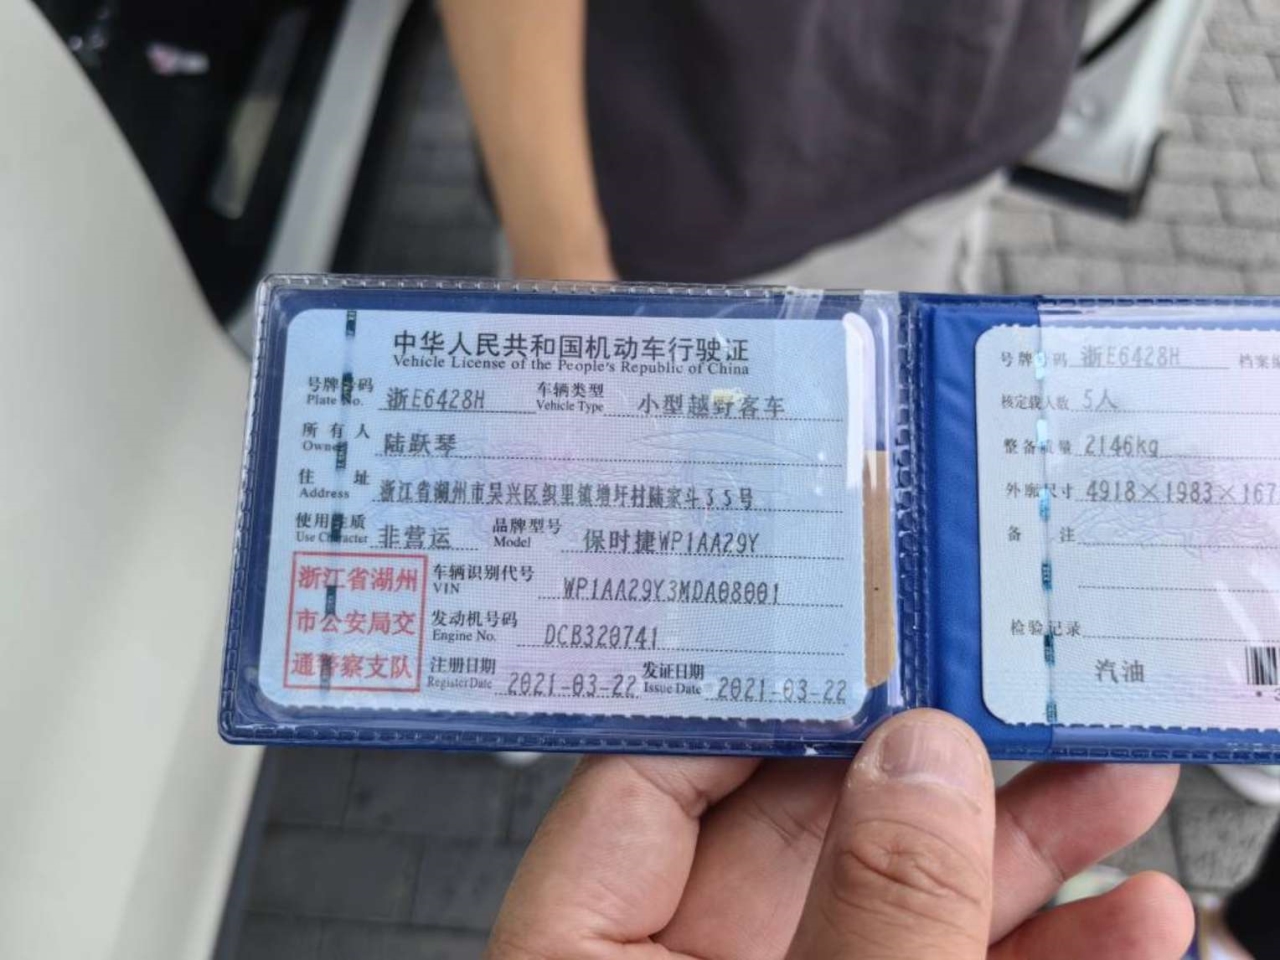 中华人民共和国机动车行驶证
Vehicle License of the People's Republic of China
号牌号码 浙E6428H 车辆类型 小型越野客车
Plate No. Vehicle Type
所有人 陆跃琴
Owner
住址 浙江省湖州市吴兴区织里镇增圩村陆家斗35号
Address
使用性质 非营运 品牌型号 保时捷WP1AA29Y
Use Character Model
浙江省湖州
市公安局交
通警察支队
车辆识别代号 WP1AA29Y3MDA08001
VIN
发动机号码 DCB320741
Engine No.
注册日期 2021-03-22 发证日期 2021-03-22
Register Date Issue Date
号牌号码 浙E6428H 档案
核定载人数 5人
整备质量 2146kg
外廓尺寸 4918×1983×167
备注
检验记录
汽油